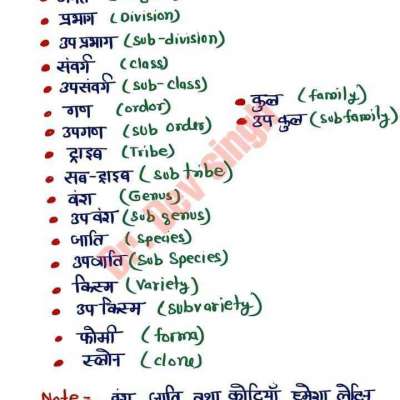 प्रभाग (Division)
उपप्रभाग (sub-division)
संवर्ग (class)
उपसंवर्ग (sub-class)
गण (ordor)
उपगण (sub order)
ट्राइब (Tribe)
सब-ट्राइब (sub tribe)
वंश (Genus)
उपवंश (Sub genus)
जाति (species)
उपजाति (Sub Species)
किस्म (Variety)
उप किस्म (subvariety)
फोर्मा (forma)
क्लोन (clone)
कुल (family)
उप कुल (subfamily)
Note - वंश जाति तथा कोटियाँ हमेशा लेटिन
Dr. Dev singh